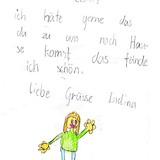 ich häte gerne das
du zu uns noch Hau
se komst das fände
ich schön.
Liebe Grüsse Ladina